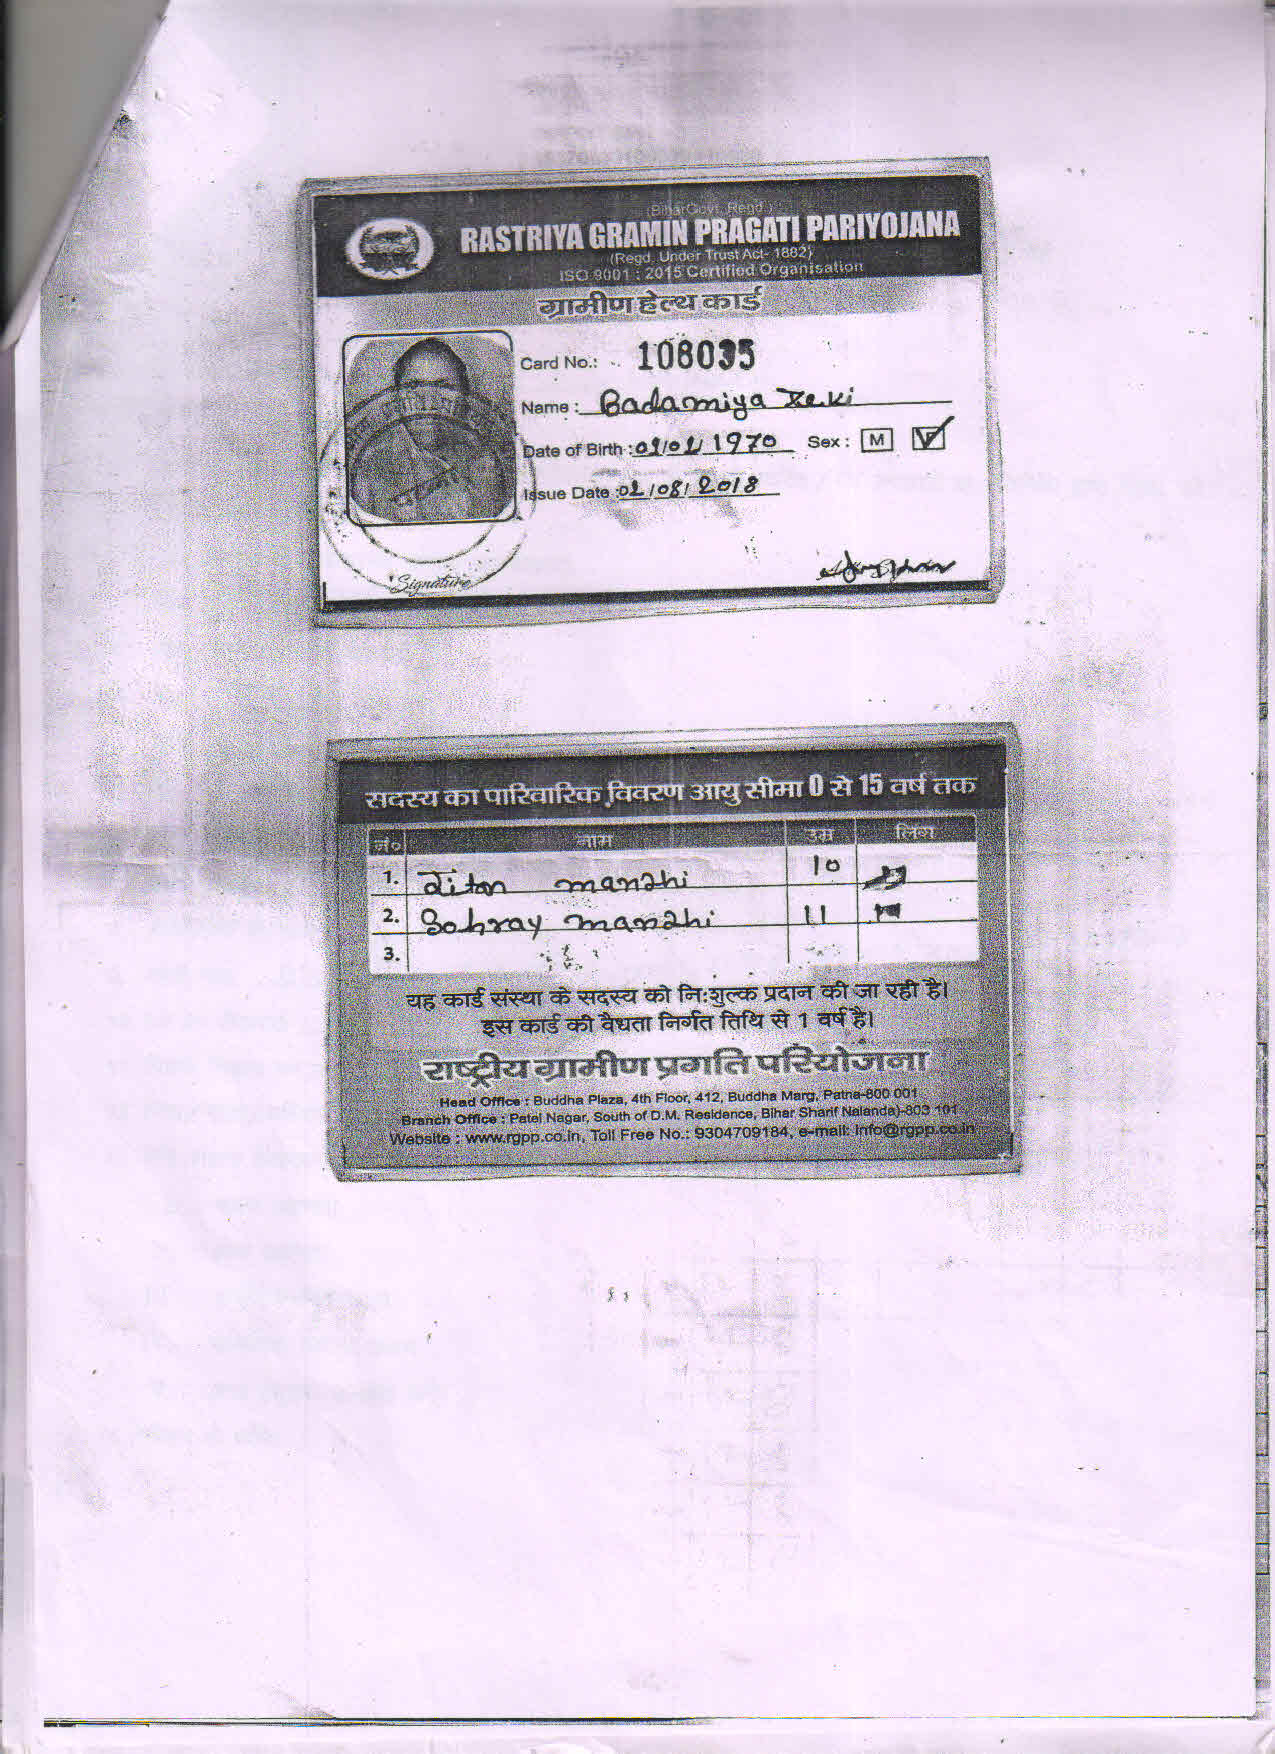 (Bihar Govt. Regd.)
RASTRIYA GRAMIN PRAGATI PARIYOJANA
(Regd. Under Trust Act- 1882)
ISO 9001 : 2015 Certified Organisation
ग्रामीण हेल्थ कार्ड
Card No.: 108035
Name : Badamiya Devi
Date of Birth : 01/01/1970 Sex : M F
Issue Date : 02/08/2018
Signature
सदस्य का पारिवारिक विवरण आयु सीमा 0 से 15 वर्ष तक
नं० नाम उम्र लिंग
1. Jitan manjhi 10
2. Sohray manjhi 11
3.
यह कार्ड संस्था के सदस्य को नि:शुल्क प्रदान की जा रही है।
इस कार्ड की वैधता निर्गत तिथि से 1 वर्ष है।
राष्ट्रीय ग्रामीण प्रगति परियोजना
Head Office : Buddha Plaza, 4th Floor, 412, Buddha Marg, Patna-800 001
Branch Office : Patel Nagar, South of D.M. Residence, Bihar Sharif Nalanda)-803 101
Website : www.rgpp.co.in, Toll Free No.: 9304709184, e-mail: info@rgpp.co.in